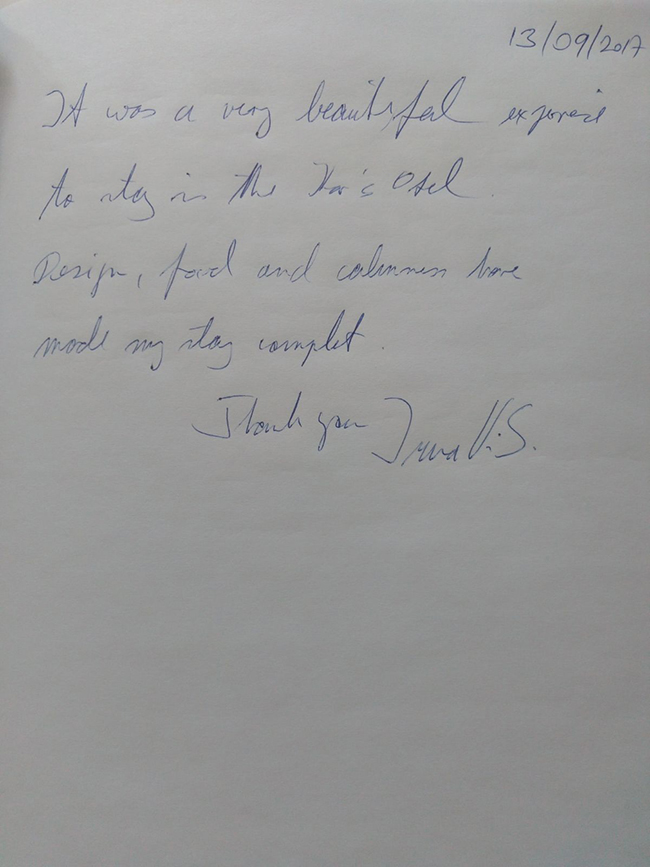 13/09/2017
It was a very beautiful experience
to stay in the Otel.
Design, food and calmness have
made my stay complet.
Thank you Irma V.S.